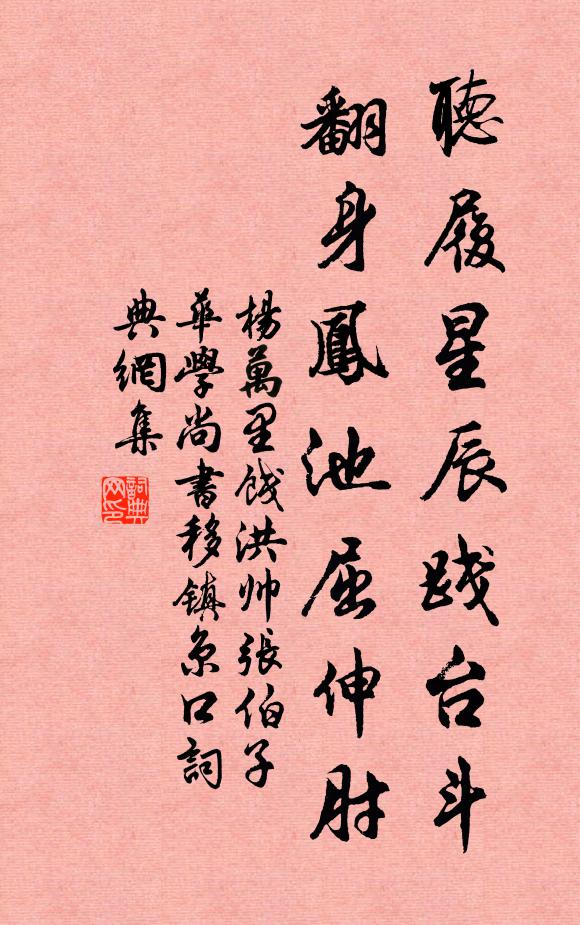 聽履星辰踐台斗
翻身鳳池屈伸肘
楊萬里餞洪帅張伯子
華學尚書移鎮京口詞
典網集
詞典
网印